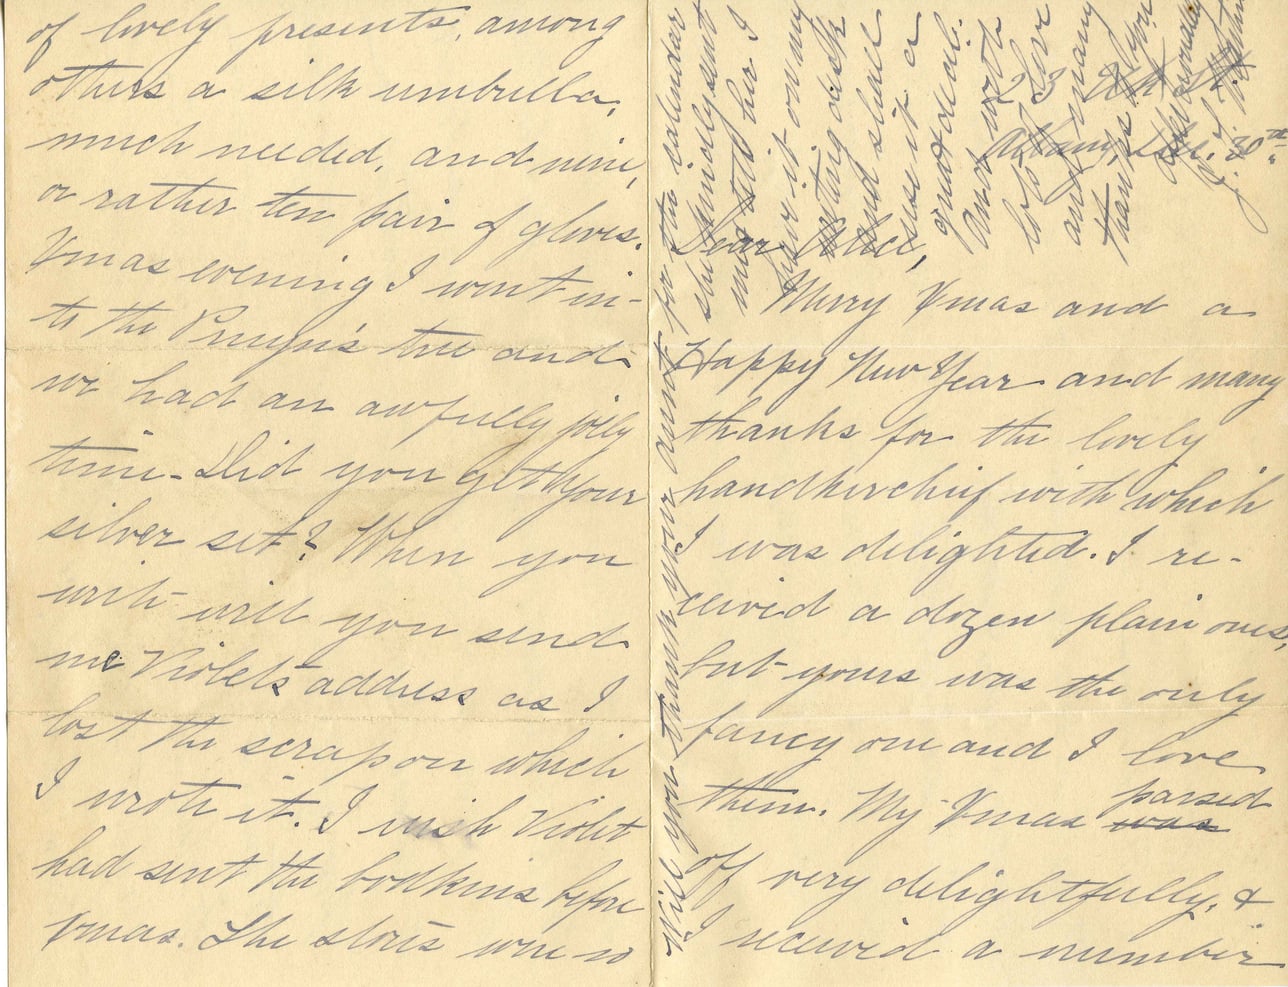 23 Elk St.
Albany, Dec. 30th
Dear Alice,
Merry Xmas and a
Happy New Year and many
thanks for the lovely
handkerchief with which
I was delighted. I re-
ceived a dozen plain ones,
but yours was the only
fancy one and I love
them. My Xmas was passed
off very delightfully, &
I received a number
of lovely presents, among
others a silk umbrella,
much needed, and nine,
or rather ten pair of gloves.
Xmas evening I went in-
to the Pruyn's tree and
we had an awfully jolly
time. Did you get your
silver set? When you
write will you send
me Violet's address as I
lost the scrap on which
I wrote it. I wish Violet
had sent the bodkins before
Xmas. The stores were so
Will you thank your aunt for the calendar
she kindly sent
me & tell her I
have it on my
writing desk
and shall
use it a
great deal.
And with
love
to
and many
thanks